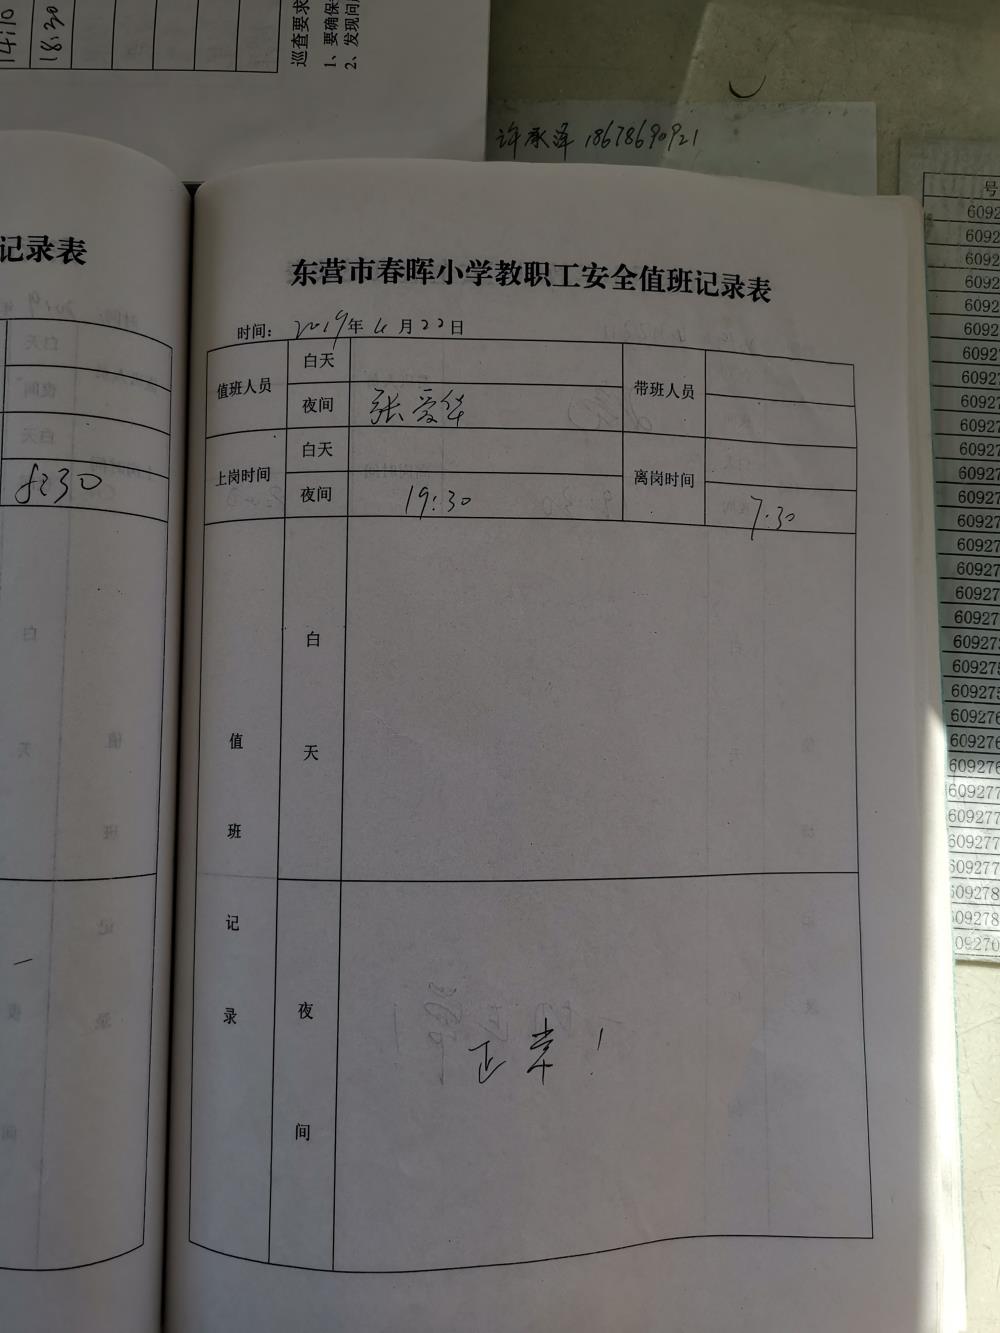 14:10
18:30
巡查要求
1、要确保
2、发现问
许承泽 18678690921
记录表
8:30
东营市春晖小学教职工安全值班记录表
时间: 2019年4月22日
值班人员 白天 带班人员
夜间 张爱华
上岗时间 白天 离岗时间
夜间 19:30 7:30
值班记录 白天
夜间 正常!
号
6092
6092
6092
6092
6092
6092
60927
60927
60927
60927
60927
60927
60927
60927
60927
60927
60927
60927
609275
609275
609276
609276
609276
609277
609277
609277
609277
609278
609278